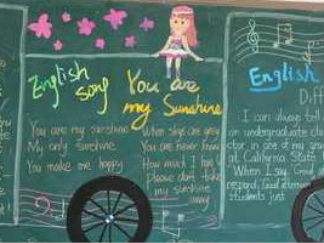 English
song
You are
my Sunshine
You are my sunshine
My only sunshine
You make me happy
When skys are gray
You are never know
How much I love
Please don't take
my sunshine
away
English
Diff
I can always tell
an undergraduate cla
tor in one of my grad
at California State
When I say, Good
respond, Good afternoon
students just